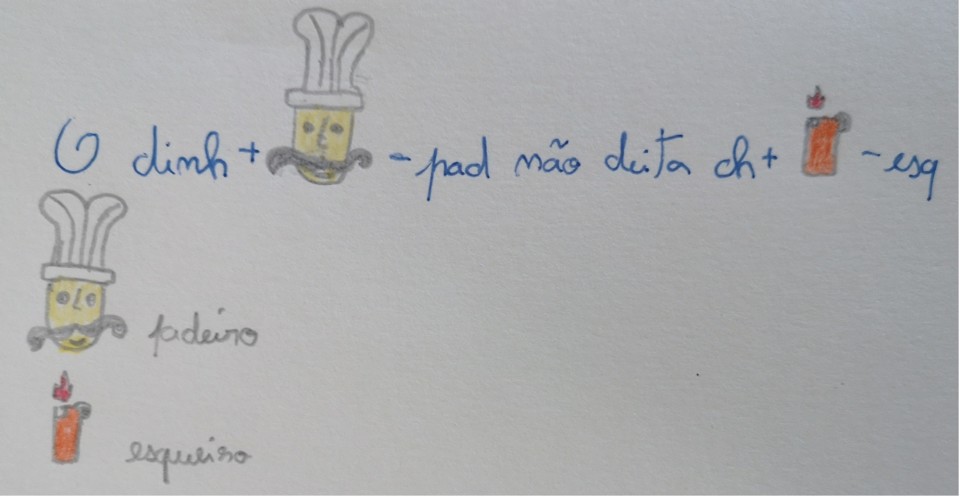 O dinh+ -pad não deita ch+ -esq
padeiro
esqueiro